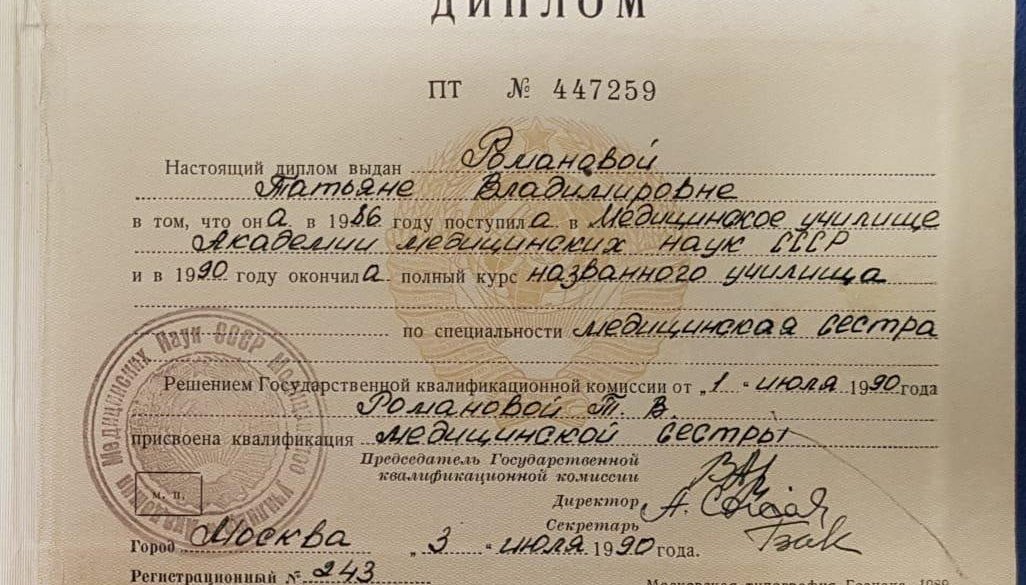 ДИПЛОМ
ПТ № 447259
Настоящий диплом выдан Романовой
Татьяне Владимировне
в том, что она в 1986 году поступила в Медицинское училище
Академии медицинских наук СССР
и в 1990 году окончила полный курс названного училища
по специальности медицинская сестра
Решением Государственной квалификационной комиссии от „1“ июля 1990 года
Романовой Т. В.
присвоена квалификация медицинской сестры
Председатель Государственной
квалификационной комиссии
Директор
Секретарь
м. п.
Город Москва „3“ июля 1990 года.
Регистрационный № 243
Московская типография Гознака. 1989.
Медицинских Наук СССР